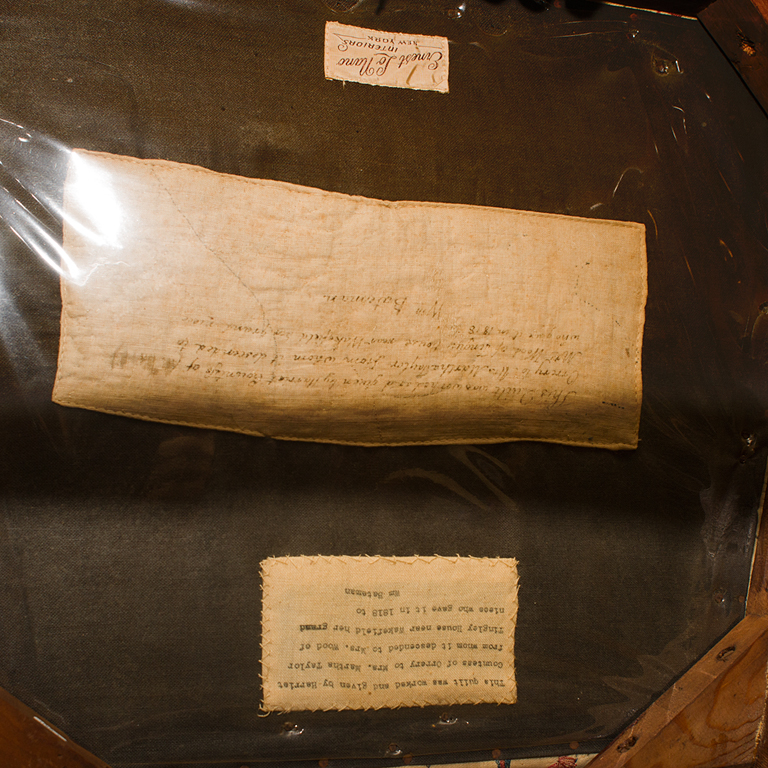 This quilt was worked and given by Harriet
Countess of Orrery to Mrs. Martha Taylor
from whom it descended to Mrs. Wood of
Tingley House near Wakefield her grand
niece who gave it in 1818 to
Wm Bateman
This Quilt was worked and given by Harriet Countess of
Orrery to Mrs Martha Taylor from whom it descended to
Mrs Wood of Tingley House near Wakefield her grand niece
who gave it in 1818
Wm Bateman
Ernest Lo Nano
INTERIORS
NEW YORK